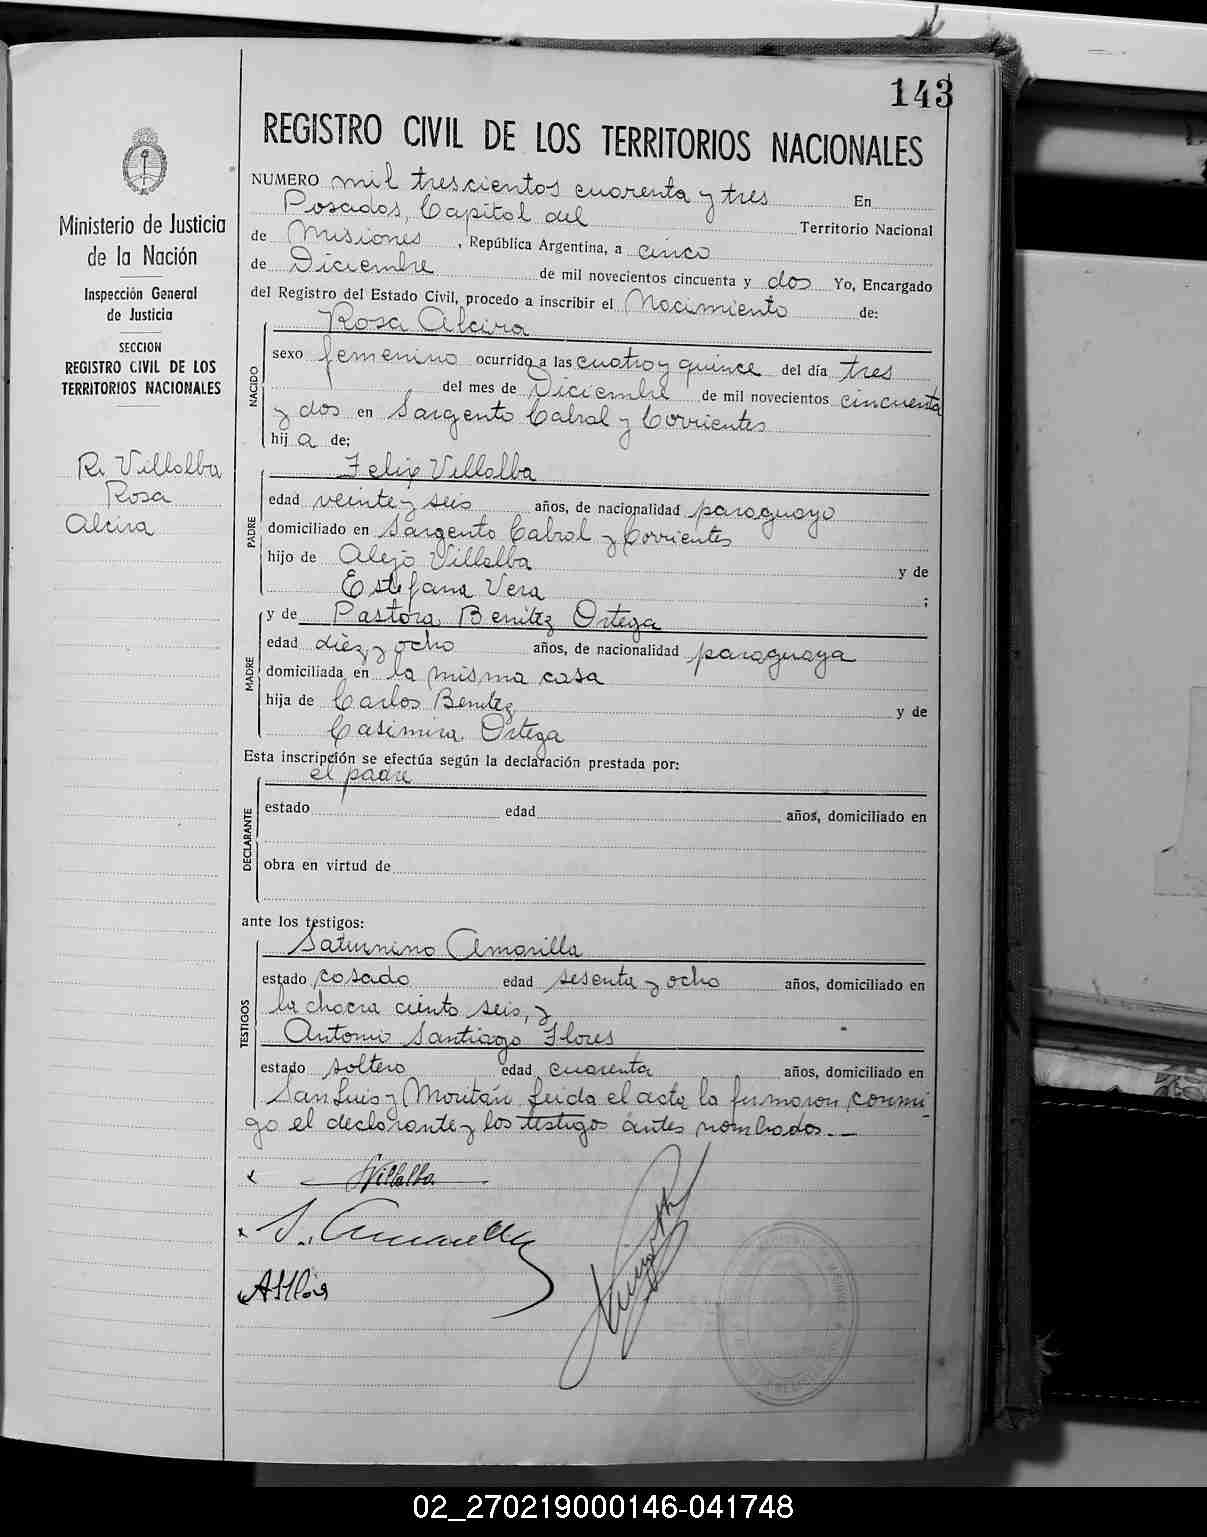 143
REGISTRO CIVIL DE LOS TERRITORIOS NACIONALES
Ministerio de Justicia
de la Nación
Inspección General
de Justicia
SECCION
REGISTRO CIVIL DE LOS
TERRITORIOS NACIONALES
R. Villalba
Rosa
Alcira
NUMERO mil trescientos cuarenta y tres En
Posadas, Capital del Territorio Nacional
de Misiones, República Argentina, a cinco
de Diciembre de mil novecientos cincuenta y dos Yo, Encargado
del Registro del Estado Civil, procedo a inscribir el Nacimiento de:
Rosa Alcira
NACIDO
sexo femenino ocurrido a las cuatro y quince del día tres
del mes de Diciembre de mil novecientos cincuenta
y dos en Sargento Cabral y Corrientes
hij a de:
Felix Villalba
PADRE
edad veinte y seis años, de nacionalidad paraguayo
domiciliado en Sargento Cabral y Corrientes
hijo de Alejo Villalba y de
Estefana Vera ;
y de Pastora Benitez Ortega
MADRE
edad diez y ocho años, de nacionalidad paraguaya
domiciliada en la misma casa
hija de Carlos Benitez y de
Casimira Ortega
Esta inscripción se efectúa según la declaración prestada por:
el padre
DECLARANTE
estado edad años, domiciliado en
obra en virtud de
ante los testigos:
Saturnino Amarilla
TESTIGOS
estado casado edad sesenta y ocho años, domiciliado en
la chacra ciento seis, y
Antonio Santiago Flores
estado soltero edad cuarenta años, domiciliado en
San Luis y Moritán. Leida el acta la firmaron conmi-
go el declarante y los testigos antes nombrados.—
x Villalba
x S. Amarilla
02_270219000146-041748